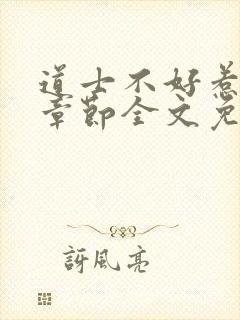 道士不好惹
章節全文免
訝風亮